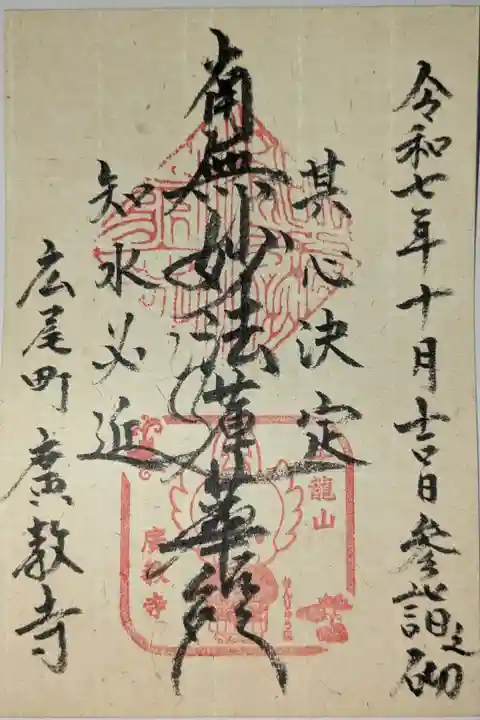 令和七年十月吉日参詣之砌
其心決定
南無妙法蓮華経
知水必近
広尾町 廣教寺
龍山
廣教寺